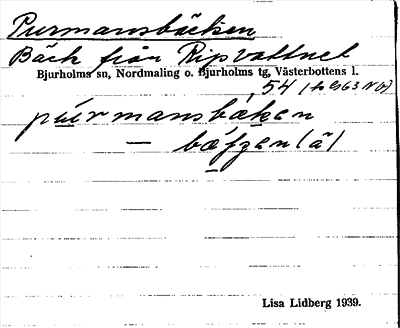 Purmansbäcken
Bäck från Ripvattnet
Bjurholms sn, Nordmaling o. Bjurholms tg, Västerbottens l.
54
pu̲u̲rmansbäken
— bäfzen (ä)
Lisa Lidberg 1939.